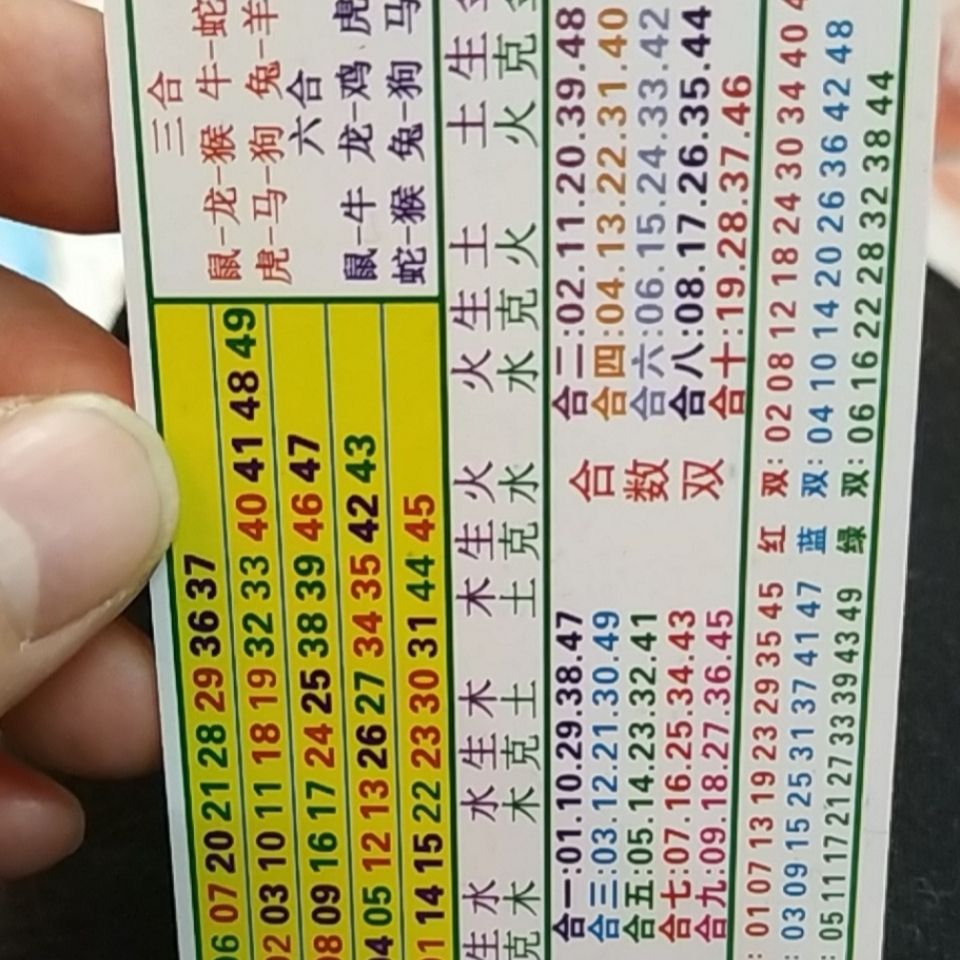 三合
鼠-龙-猴 牛-蛇
虎-马-狗 兔-羊
六合
鼠-牛 龙-鸡 虎
蛇-猴 兔-狗 马
06 07 20 21 28 29 36 37
02 03 10 11 18 19 32 33 40 41 48 49
08 09 16 17 24 25 38 39 46 47
04 05 12 13 26 27 34 35 42 43
01 14 15 22 23 30 31 44 45
生水 水生木 木生火 火生土 土生金
克木 木克土 土克水 水克火 火克金
合一:01.10.29.38.47
合三:03.12.21.30.49
合五:05.14.23.32.41
合七:07.16.25.34.43
合九:09.18.27.36.45
合数双
合二:02.11.20.39.48
合四:04.13.22.31.40
合六:06.15.24.33.42
合八:08.17.26.35.44
合十:19.28.37.46
: 01 07 13 19 23 29 35 45 红双: 02 08 12 18 24 30 34 40
: 03 09 15 25 31 37 41 47 蓝双: 04 10 14 20 26 36 42 48
: 05 11 17 21 27 33 39 43 49 绿双: 06 16 22 28 32 38 44